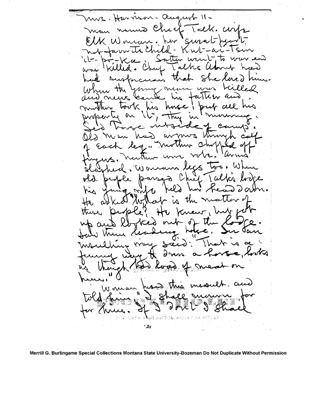 Mrs. Harrison - August 11 -
Man named Chief Talk. wife
Elk Woman. her sweetheart
not favorite child. Kut-ai-Isin
it-po-kee. Latter went to war and
was killed. Chief Talk's
had suspicion that she loved him.
When the young man was killed
and news came his father and
mother took his horse & put all his
property on it. They in mourning.
Led horse outside of camp.
Old man had arrows through calf
of each leg. Mother chopped off
fingers. neither wore robe. arms
slashed. Womans legs too. When
old people passed Chief Talk's lodge
his young wife held her head down.
He asked "What is the matter of
these people" He knew, but got
up and looked out of the lodge.
Saw them leading horse. In an
insulting way said: "That is a
funny way to dress a horse, looks
as though had load of meat on
him."
Woman heard this insult and
told him "I shall mourn for
for him. If I I shall
Merrill G. Burlingame Special Collections Montana State University-Bozeman Do Not Duplicate Without Permission